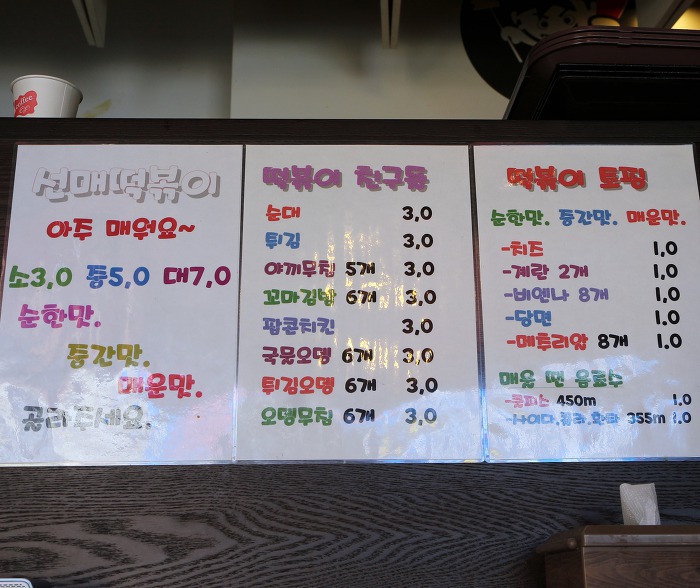 coffee
선매떡볶이
아주 매워요~
소3,0 중5,0 대7,0
순한맛.
중간맛.
매운맛.
골라주세요.
떡볶이 친구들
순대 3,0
튀김 3,0
야끼무침 5개 3,0
꼬마김밥 6개 3,0
팝콘치킨 3,0
국물오뎅 6개 3,0
튀김오뎅 6개 3,0
오뎅무침 6개 3,0
떡볶이 토핑
순한맛. 중간맛. 매운맛.
-치즈 1,0
-계란 2개 1,0
-비엔나 8개 1,0
-당면 1,0
-메추리알 8개 1.0
매울 땐 음료수
-쿨피스 450m 1.0
-사이다.콜라.환타 355m 1.0